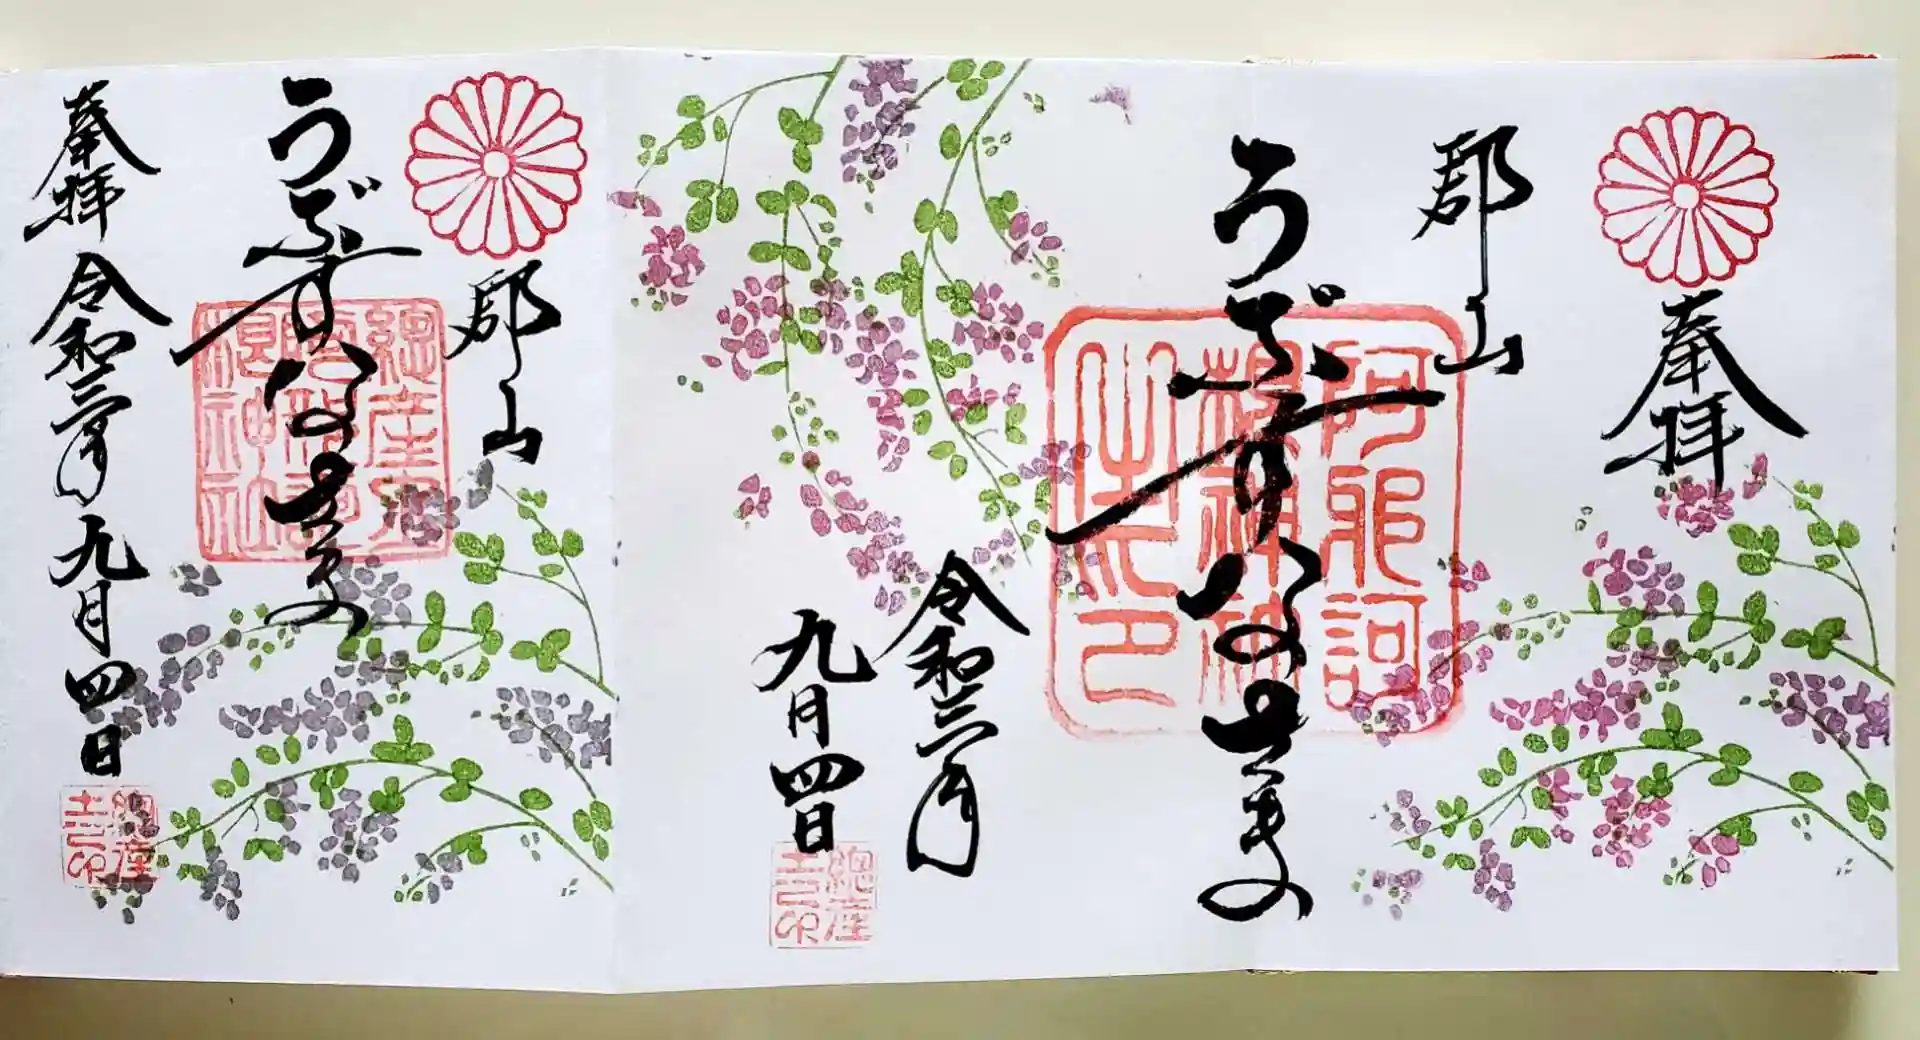 奉拝
郡山
うぶすなさま
阿邪訶
根神社
之印
令和三年
九月四日
總産
土之印
郡山
うぶすなさま
總産土
阿邪訶
根神社
奉拝 令和三年九月四日
總産
土之印